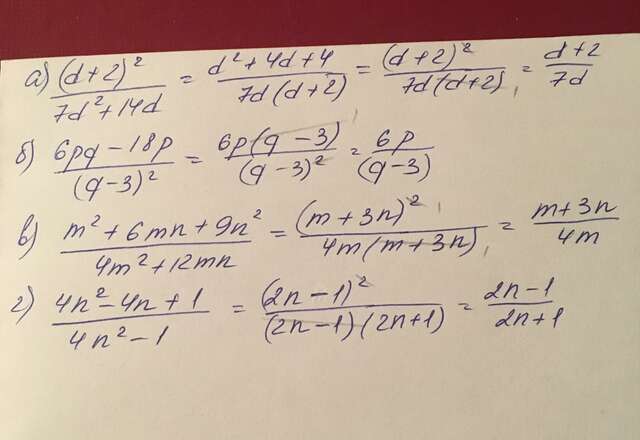 а) (d+2)²/7d²+14d = d²+4d+4/7d(d+2) = (d+2)²/7d(d+2) = d+2/7d
б) 6pq-18p/(q-3)² = 6p(q-3)/(q-3)² = 6p/(q-3)
в) m²+6mn+9n²/4m²+12mn = (m+3n)²/4m(m+3n) = m+3n/4m
г) 4n²-4n+1/4n²-1 = (2n-1)²/(2n-1)(2n+1) = 2n-1/2n+1